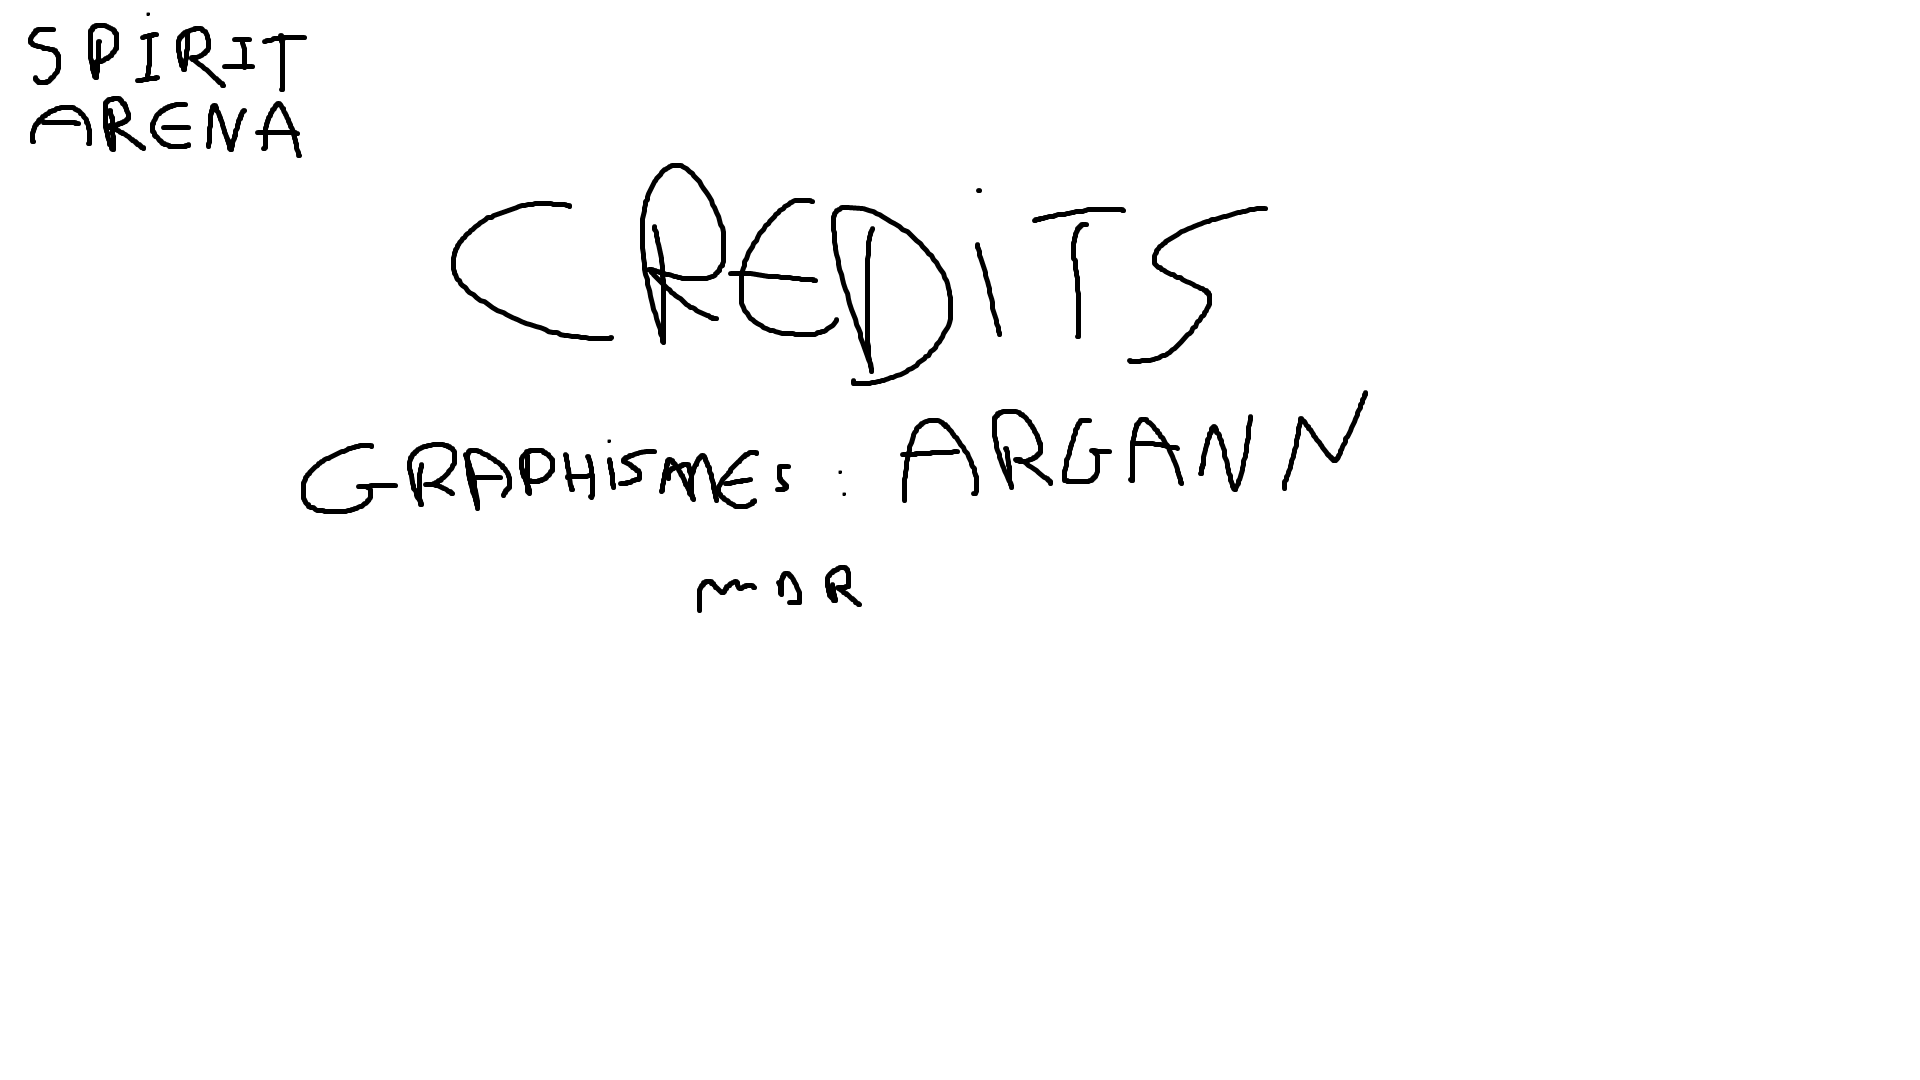 SPIRIT
ARENA
CREDiTS
GRAPHiSMES : ARGANN
MDR